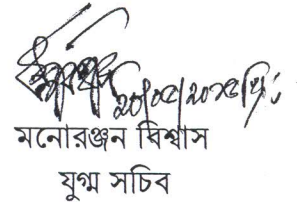 ২০/০৫/২০২৫ খ্রি:
মনোরঞ্জন বিশ্বাস
যুগ্ম সচিব